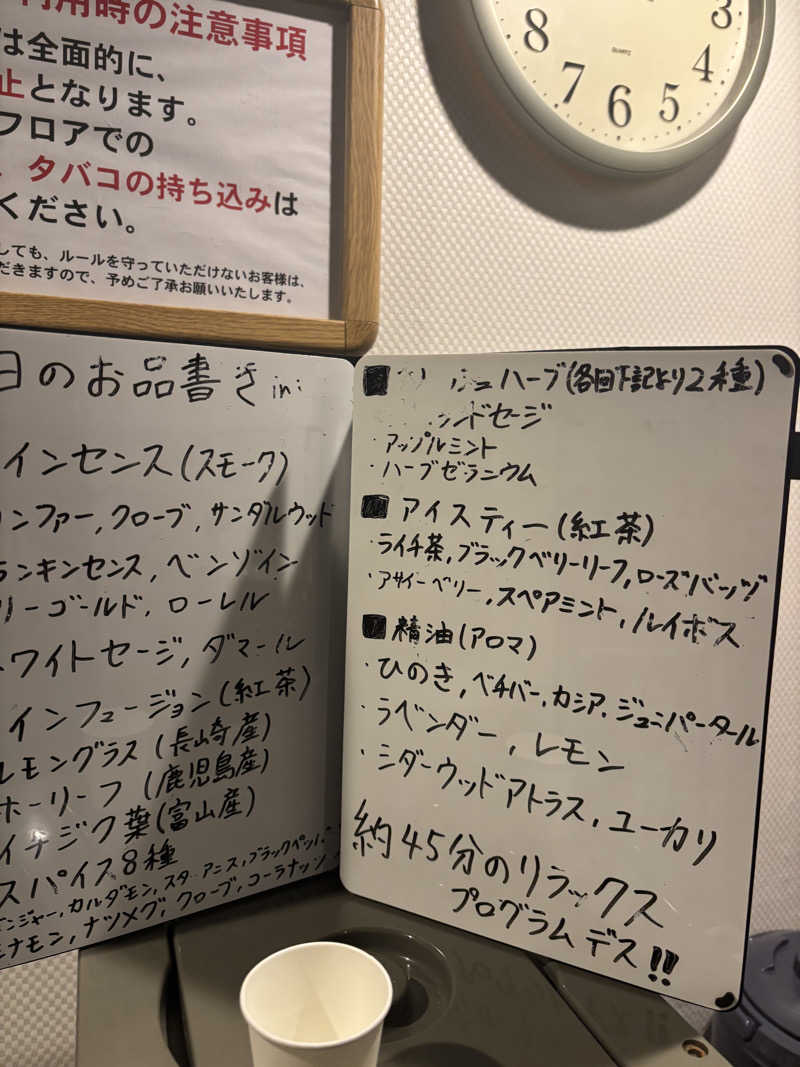 用時の注意事項
は全面的に、
止となります。
フロアでの
、タバコの持ち込みは
ください。
しても、ルールを守っていただけないお客様は、
だきますので、予めご了承お願いいたします。
8
7
6
5
4
3
QUARTZ
日のお品書き in:
インセンス(スモーク)
ンファー, クローブ, サンダルウッド
ランキンセンス, ベンゾイン
リーゴールド, ローレル
ワイトセージ, ダマール
インフュージョン(紅茶)
レモングラス(長崎産)
ホーリーフ(鹿児島産)
イチジク葉(富山産)
スパイス8種
ンジャー, カルダモン, スターアニス, ブラックペッパー
ナモン, ナツメグ, クローブ, コーラナッツ
シュハーブ(各回下記より2種)
ランドセージ
・アップルミント
・ハーブゼラニウム
アイスティー(紅茶)
・ライチ茶, ブラックベリーリーフ, ローズバッヅ
・アサイーベリー, スペアミント, ルイボス
精油(アロマ)
・ひのき, ベチバー, カシア, ジュニパータール
・ラベンダー, レモン
・シダーウッドアトラス, ユーカリ
約45分のリラックス
プログラムデス!!